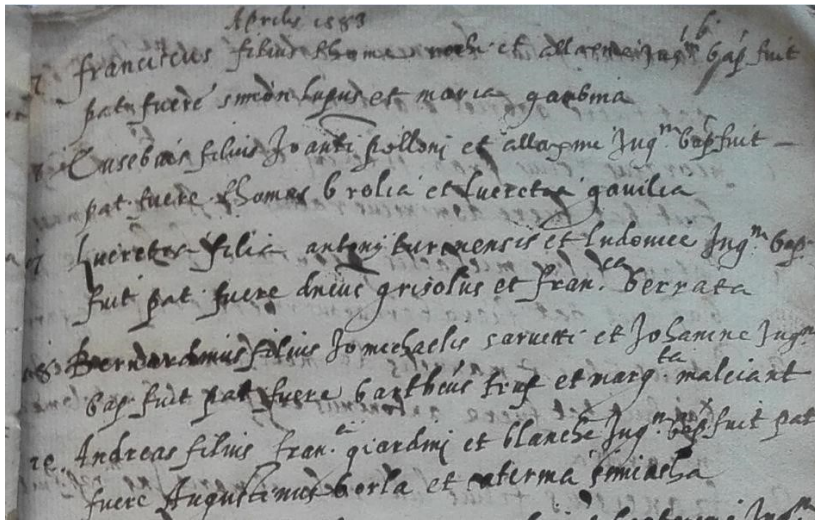 Aprilis 1583
franciscus filius thome et allasine Jug^m bap fuit
pat fuere simon lupus et maria gaubina
Eusebius filius Jo anti pelloni et allasine Jug^m. bap fuit
pat. fuere thomas brolia et lucretia gavilia
lucretia filia antonij turonensis et ludovice Jug^m bap.
fuit pat. fuere grisolus et fran.^ca berrata
Bernardinus filius Jo michaelis saruetti et Johanine Jug^m
bap. fuit pat fuere bartheus truf et marg.^ta malciant
Andreas filius fran.^ci giardini et blanche Jug^m. bap fuit pat
fuere Augustinus borla et caterina